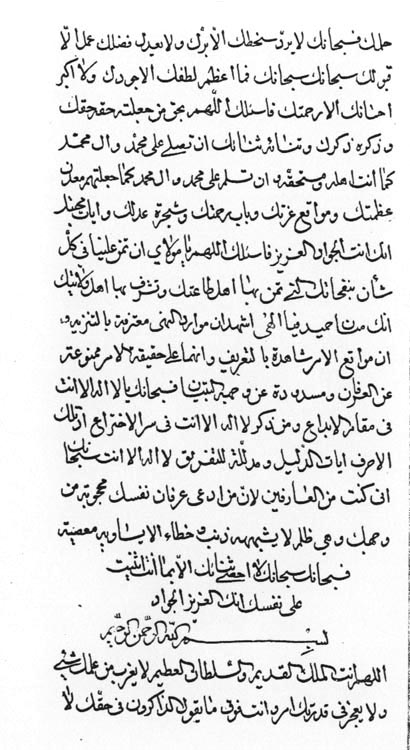 حلمك فسبحانك لا يرد سخطك الا بذلك ولا يعدل فضلك عمل الا
قبولك سبحانك سبحانك فما اعظم لطفك الا جودك ولا اكبر
احسانك الا رحمتك فاسئلك اللهم بحق من جعلته حقه حقك
وذكره ذكرك وثنائه ثنائك ان تصلي على محمد وال محمد
كما انت اهله ومستحقه وان تسلم على محمد وال محمد كما جعلتهم معدن
عظمتك ومواقع عزتك وباب رحمتك وشجرة عدلك وايات
انك انت الجواد العزيز فاسئلك اللهم يا مولاي ان تمن علينا في كل
شأن بنفحاتك التي تمن بها اهل طاعتك وتشرف بها اهل ولايتك
انك منان حميد فيا الهي اشهد ان موارد النهى معترفة بالتنزيه و
ان مواقع الامر شاهدة بالتفريق وانهما على حقيقة الامر ممنوعة
عن العرفان ومسدودة عن وجهة التبيان فسبحانك يا لا اله الا انت
في مقام الابداع ومن ذكر لا اله الا انت في سر الاختراع اذ تلك
الاحرف ايات الدليل ومدلة للتفريق لا اله الا انت سبحانك
اني كنت من العارفين لان من ادعى عرفان نفسك محجوبة من
وجهك وهي ظلم لا يشبهه ذنب وخطاء لا يساويه معصية
فسبحانك سبحانك لا احصي ثنائك الا بما انت اثنيت
على نفسك انك العزيز الجواد
بسم الله الرحمن الرحيم
اللهم انت الملك القديم والسلطان العظيم لا يعزب من علمك شيئ
ولا يعجز في قدرتك امر انت فوق ما يقول الذاكرون في حقك لا